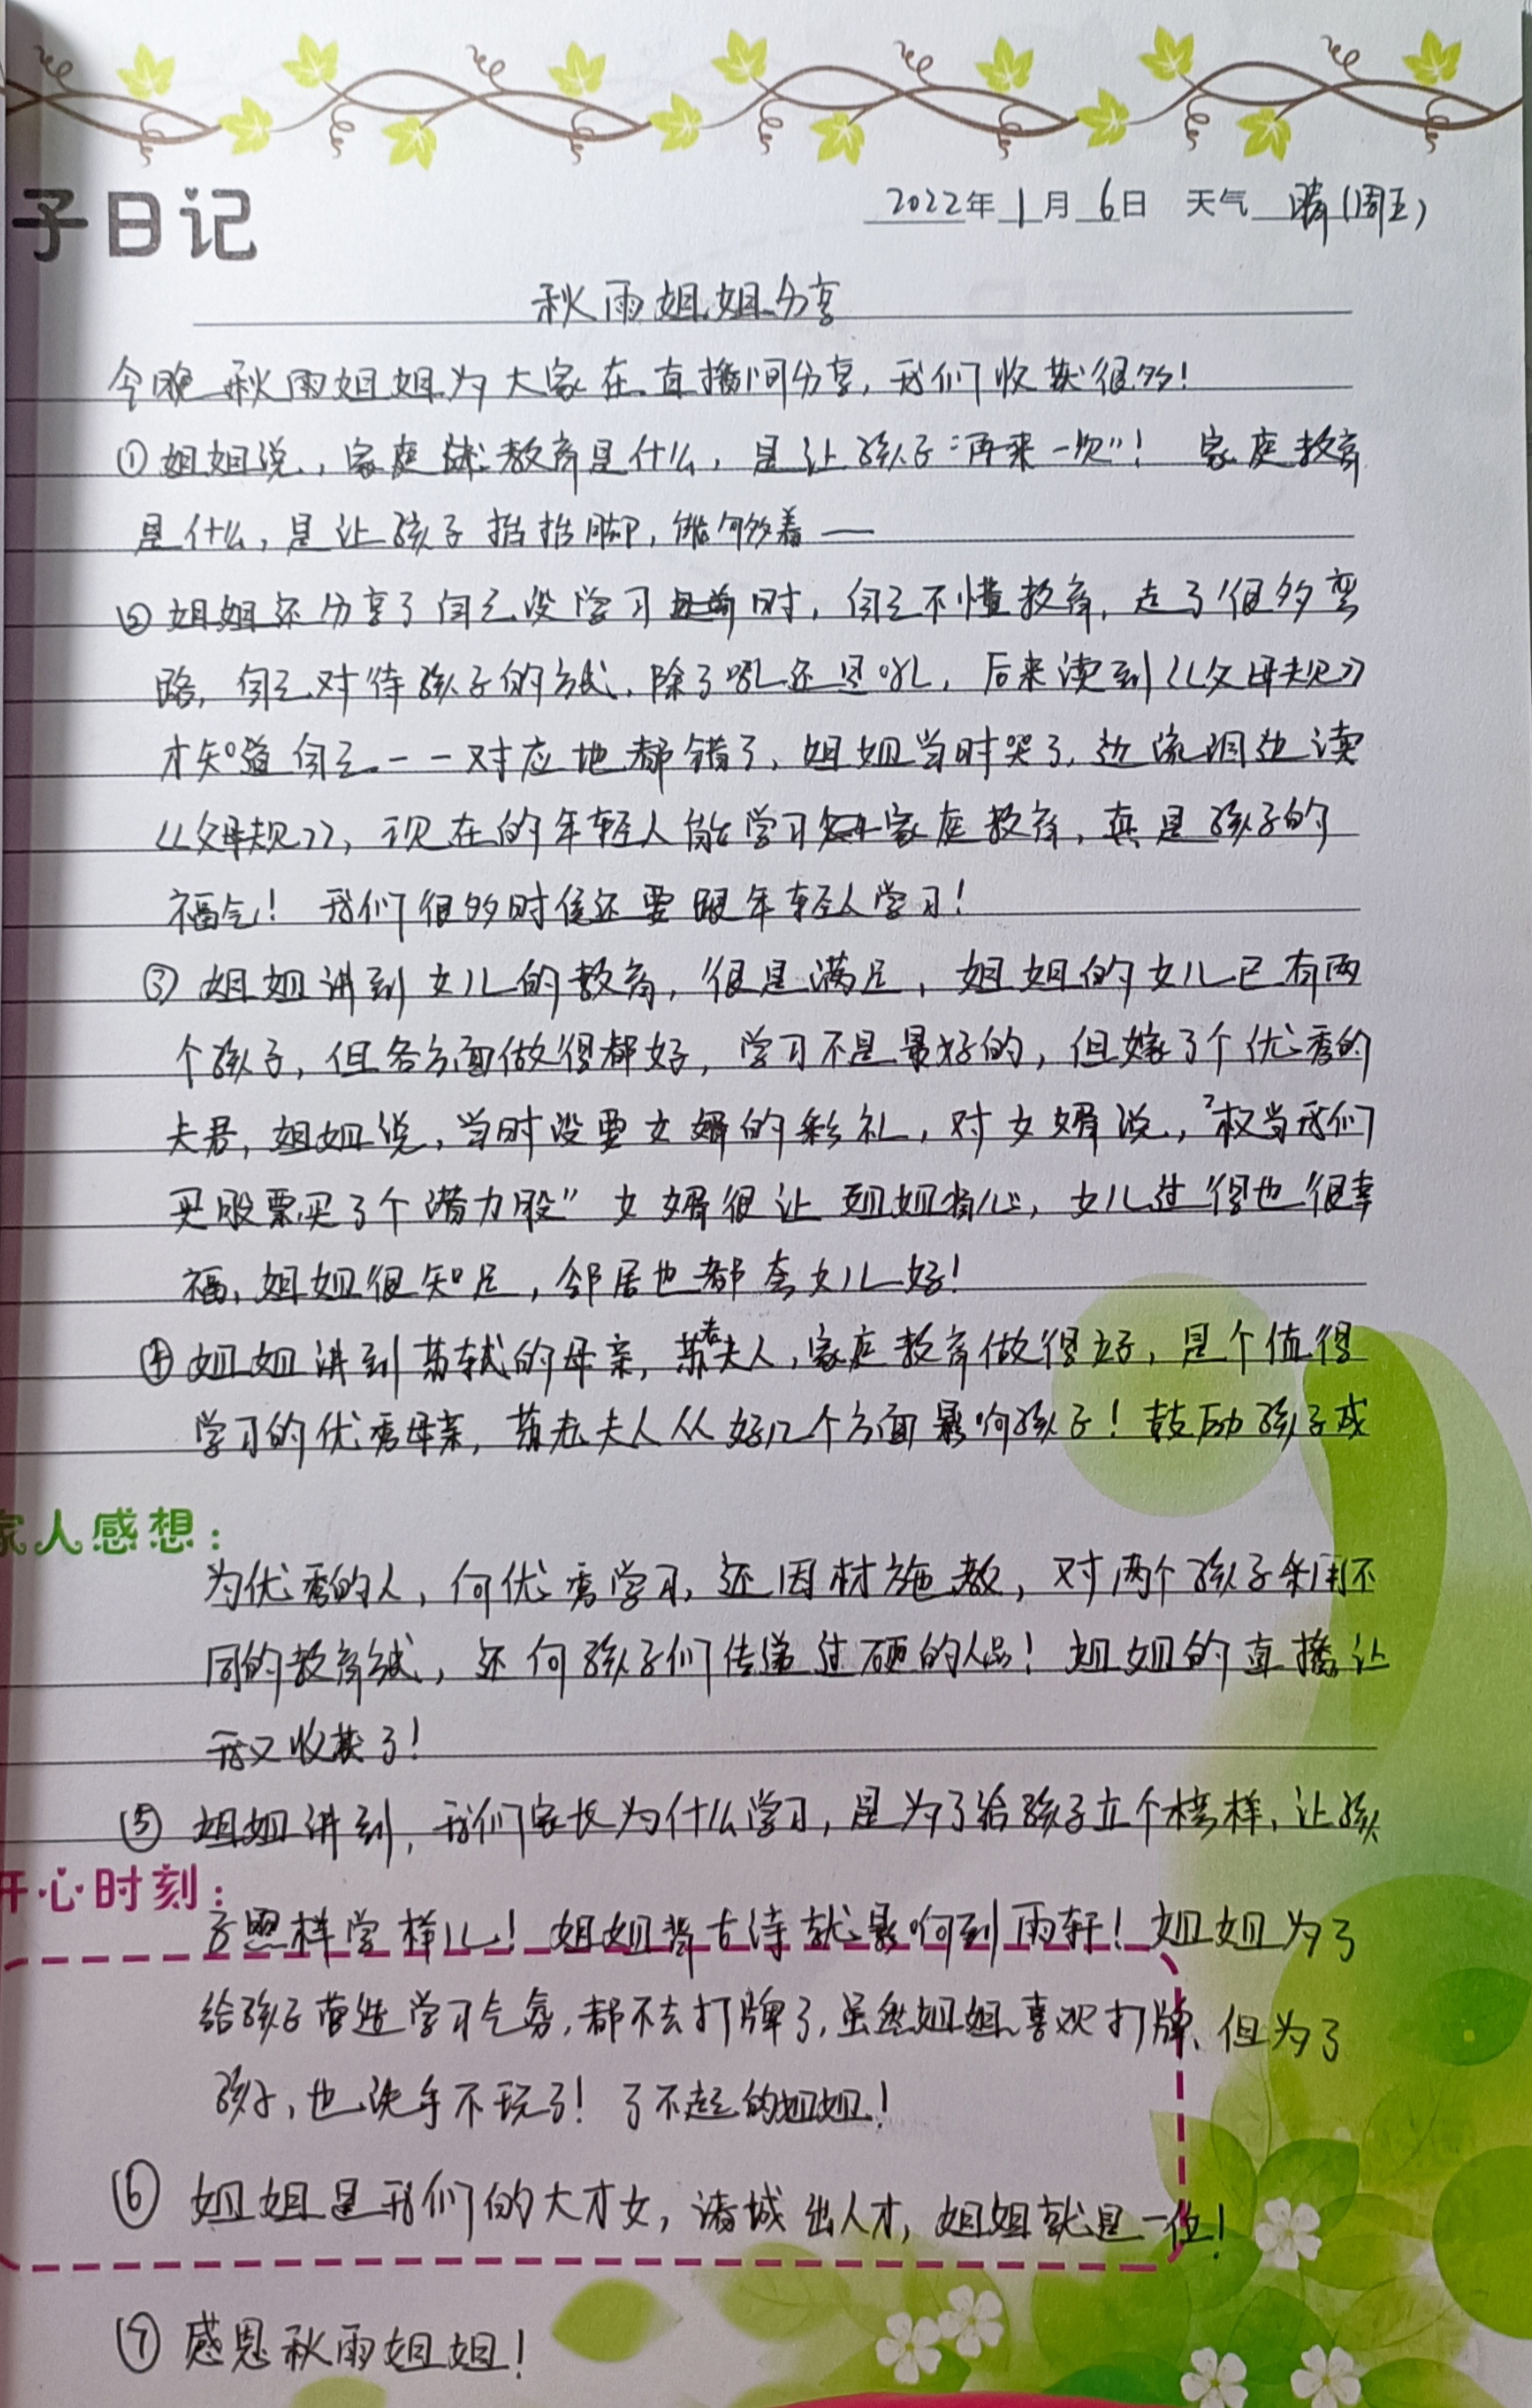 子日记
2022年1月6日 天气 晴(周五)
秋雨姐姐分享
今晚秋雨姐姐为大家在直播间分享，我们收获很多！
①姐姐说，家庭教育是什么，是让孩子“再来一次”！ 家庭教育
是什么，是让孩子抬抬脚，能够着——
②姐姐还分享了自己没学习时，自己不懂教育，走了很多弯
路，自己对待孩子的方式，除了吼还是吼，后来读到《父母规》
才知道自己一一对应地都错了，姐姐当时哭了，边流泪边读
《父母规》，现在的年轻人能学习家庭教育，真是孩子的
福气！ 我们很多时候还要跟年轻人学习！
③姐姐讲到女儿的教育，很是满足，姐姐的女儿已有两
个孩子，但各方面做得都好，学习不是最好的，但嫁了个优秀的
夫君，姐姐说，当时没要女婿的彩礼，对女婿说，“权当我们
买股票买了个潜力股” 女婿很让姐姐省心，女儿过得也很幸
福，姐姐很知足，邻居也都夸女儿好！
④姐姐讲到苏轼的母亲，苏老夫人，家庭教育做得好，是个值得
学习的优秀母亲，苏老夫人从好几个方面影响孩子！鼓励孩子成
家人感想：
为优秀的人，向优秀学习，还因材施教，对两个孩子采用不
同的教育方式，还向孩子们传递过硬的人品！姐姐的直播让
我又收获了！
⑤ 姐姐讲到，我们家长为什么学习，是为了给孩子立个榜样，让孩
开心时刻：
子照样学样儿！姐姐背古诗就影响到雨轩！姐姐为了
给孩子营造学习气氛，都不去打牌了，虽然姐姐喜欢打牌、但为了
孩子，也洗手不玩了！了不起的姐姐！
⑥ 姐姐是我们的大才女，诸城出人才，姐姐就是一位！
⑦ 感恩秋雨姐姐！